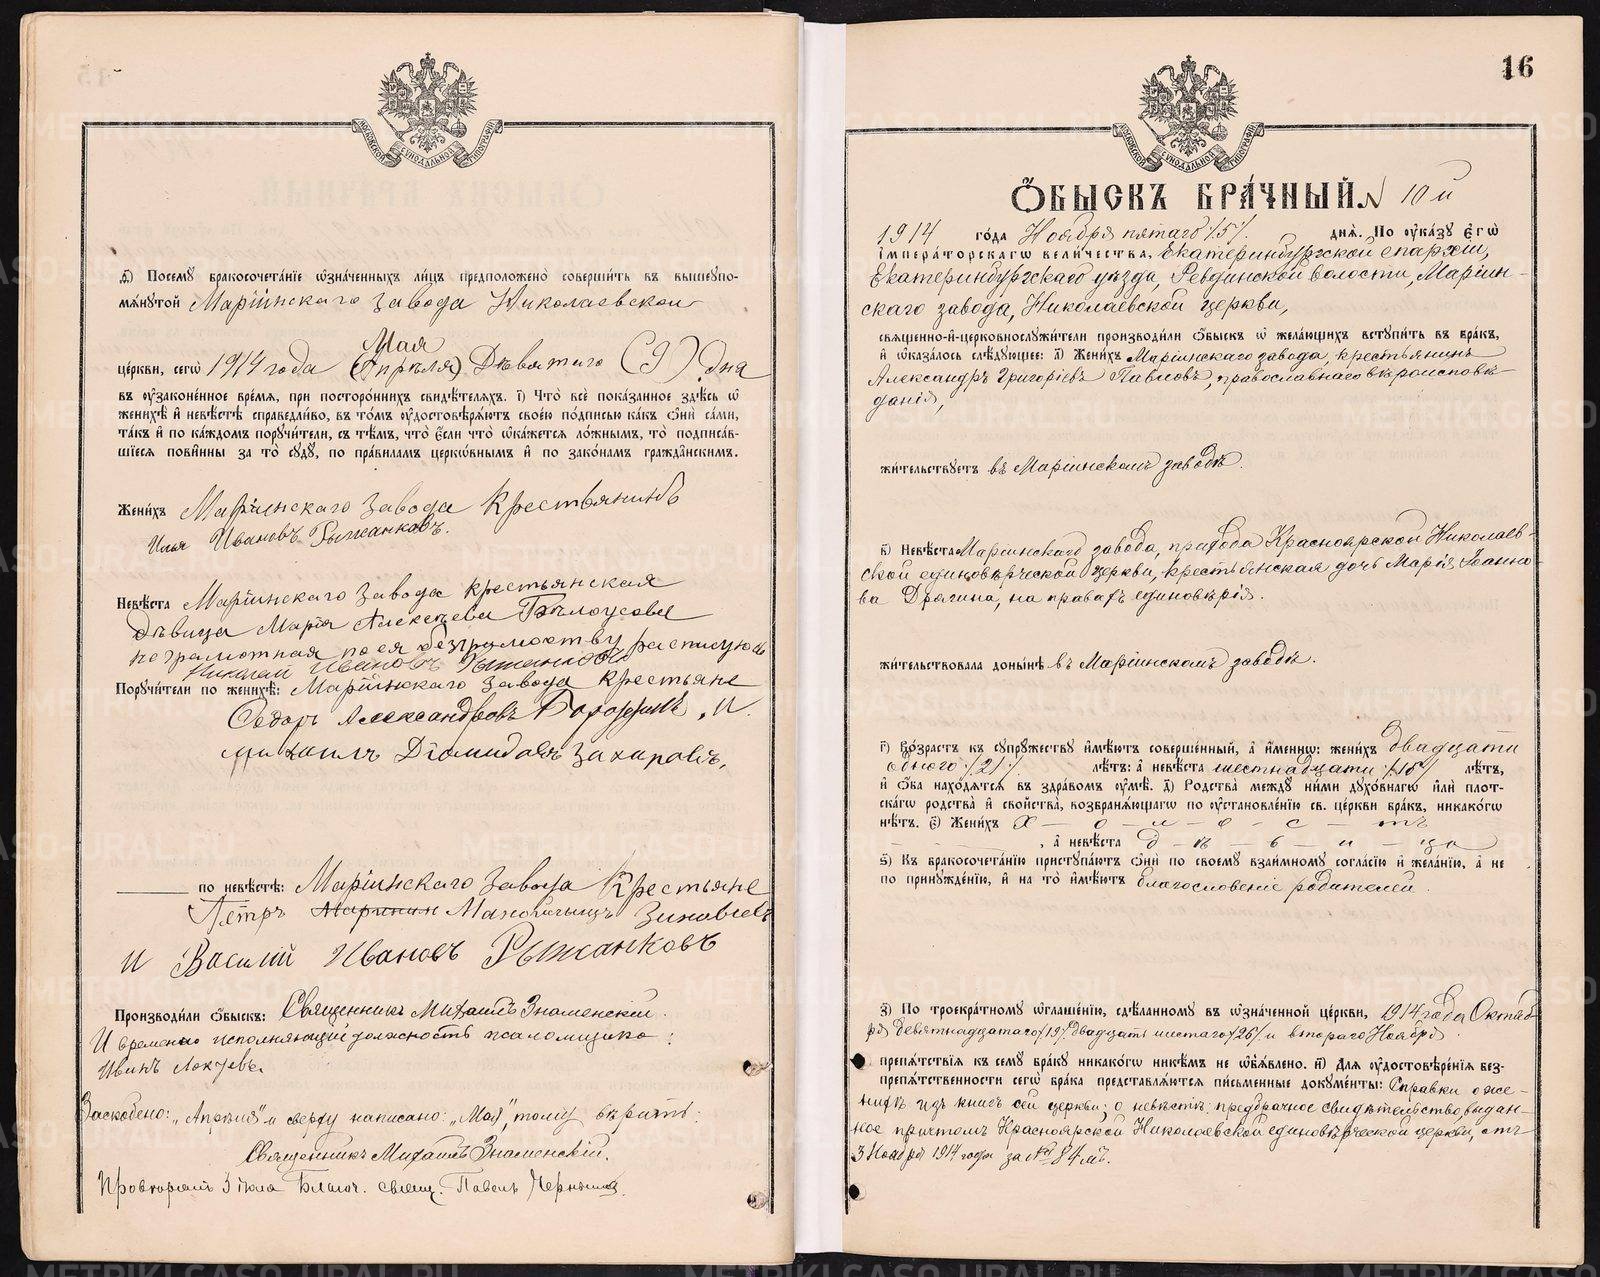 МОСКОВСКОЙ СѴНОДАЛЬНОЙ ТИПОГРАФІИ
д҃) Посему бракосочетаніе ѡзначенныхъ лицъ предположено совершить въ вышеупо-
мянутой Маріинскаго завода Николаевской
Мая
церкви, сегѡ 1914 года (Апрѣля) Девятаго (9) дня
въ оузаконенное время, при постороннихъ свидѣтеляхъ. і҃) Что всё показанное здѣсь ѡ
женихѣ и невѣстѣ справедливо, въ томъ оудостовѣряютъ своею подписью какъ ѻни сами,
такъ и по каждомъ поручители, съ тѣмъ, что если что ѡкажется ложнымъ, то подписав-
шіеся повинны за то суду, по правиламъ церковнымъ и по законамъ гражданскимъ.
Женихъ Маріинскаго завода Крестьянинъ
Илья Ивановъ Рыжанковъ.
Невѣста Маріинскаго Завода крестьянская
дѣвица Марія Алексѣева Бѣлоусова
неграмотная по ея безграмотству росписуюсь
Николай Ивановъ Рыжанковъ
Поручители по женихѣ: Маріинскаго завода Крестьяне
Ѳедоръ Александровъ и
Михаилъ Діомидовъ Захаровъ,
по невѣстѣ: Маріинскаго Завода Крестьяне
Петръ Зиновьевъ
и Василій Ивановъ Рыжанковъ
Производили ѻбыскъ: Священникъ Михаилъ Знаменскій.
И временно исполняющій должность псаломщика
Иванъ Локтевъ.
Заскоблено: „Апрѣля" и сверху написано: „Мая", тому вѣрить:
Священникъ Михаилъ Знаменскій.
Благоч. свящ. Павелъ Чернышевъ
16
МОСКОВСКОЙ СѴНОДАЛЬНОЙ ТИПОГРАФІИ
Ѻбыскъ брачный. N 10й
1914 года Ноября пятаго /5/. дня. По оуказу Егѡ
Императорскагѡ величества, Екатеринбургской епархіи,
Екатеринбургскаго уѣзда, Ревдинской волости, Маріин-
скаго завода, Николаевской церкви,
священно-и-церковнослужители производили ѻбыскъ ѡ желающихъ вступить въ бракъ,
и ѡказалось слѣдующее: а҃) Женихъ Маріинскаго завода, крестьянинъ
Александръ Григорьевъ Павловъ, православнаго вѣроисповѣ-
данія,
жительствуетъ въ Маріинскомъ заводѣ.
в҃) Невѣста Маріинскаго завода, прихода Красноярской Николаев-
ской единовѣрческой церкви, крестьянская дочь Марія Іоанно-
ва Дрягина, на правахъ единовѣрія.
жительствовала донынѣ въ Маріинскомъ заводѣ.
г҃) Возрастъ къ супружеству имѣютъ совершенный, а именнѡ: женихъ двадцати
одного /21/ лѣтъ: а невѣста шестнадцати /16/ лѣтъ,
и ѻба находятся въ здравомъ оумѣ. д҃) Родства между ними духовнагѡ или плот-
скагѡ родства и свойства, возбраняющагѡ по оустановленію св. церкви бракъ, никакогѡ
нѣтъ. е҃) Женихъ х - о - л - о - с - тъ
, а невѣста д - ѣ - в - и - ца
ѕ҃) Къ бракосочетанію приступаютъ ѻни по своему взаимному согласію и желанію, а не
по принужденію, и на то имѣютъ благословеніе родителей.
з҃) По троекратному ѡглашенію, сдѣланному въ ѡзначенной церкви, 1914 года Октяб-
ря девятнадцатаго /19/ двадцать шестаго /26/ и втораго Ноября
препятствія къ сему браку никакогѡ никѣмъ не ѡбъявлено. и҃) Для оудостовѣренія без-
препятственности сегѡ брака представляются письменные документы: Справки о же-
нихѣ изъ книгъ сей церкви; о невѣстѣ: предбрачное свидѣтельство, выдан-
ное причтомъ Красноярской Николаевской единовѣрческой церкви, отъ
3 Ноября 1914 года за № 84мъ.
METRIKI.GASO-URAL.RU